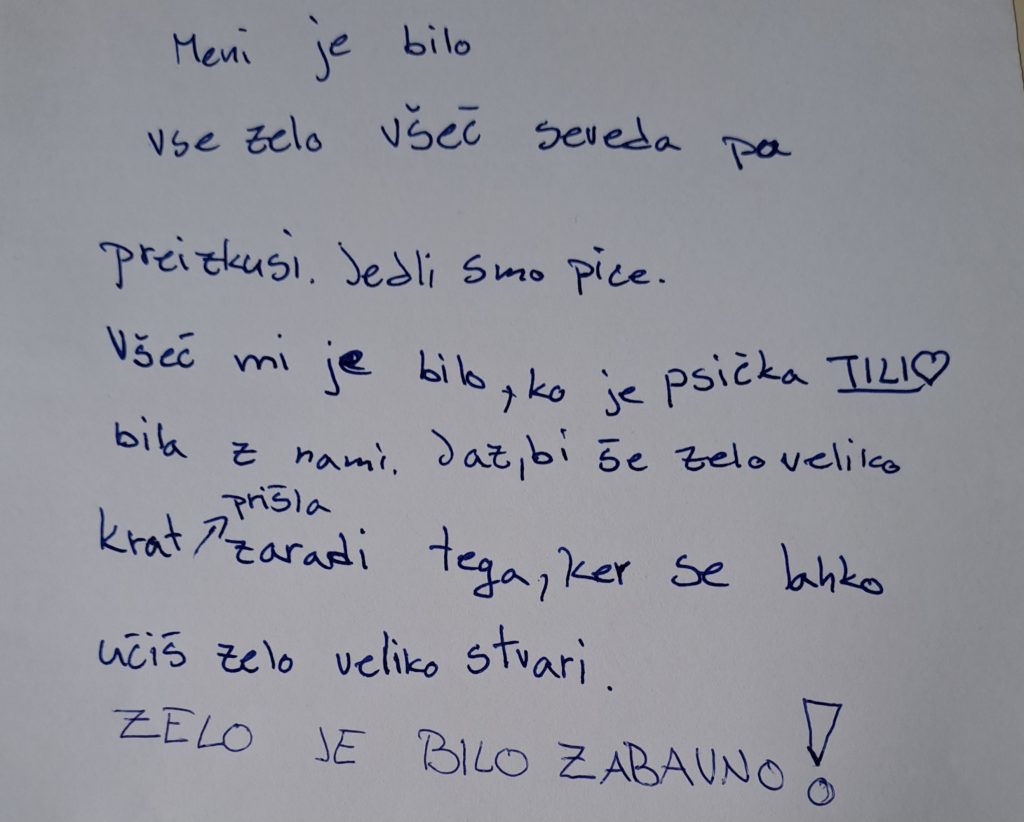 Meni je bilo
vse zelo všeč seveda pa
preizkusi. Jedli smo pice.
Všeč mi je bilo, ko je psička TILI♡
bila z nami. Jaz, bi še zelo veliko
prišla
krat ↗ zaradi tega, ker se lahko
učiš zelo veliko stvari.
ZELO JE BILO ZABAVNO!